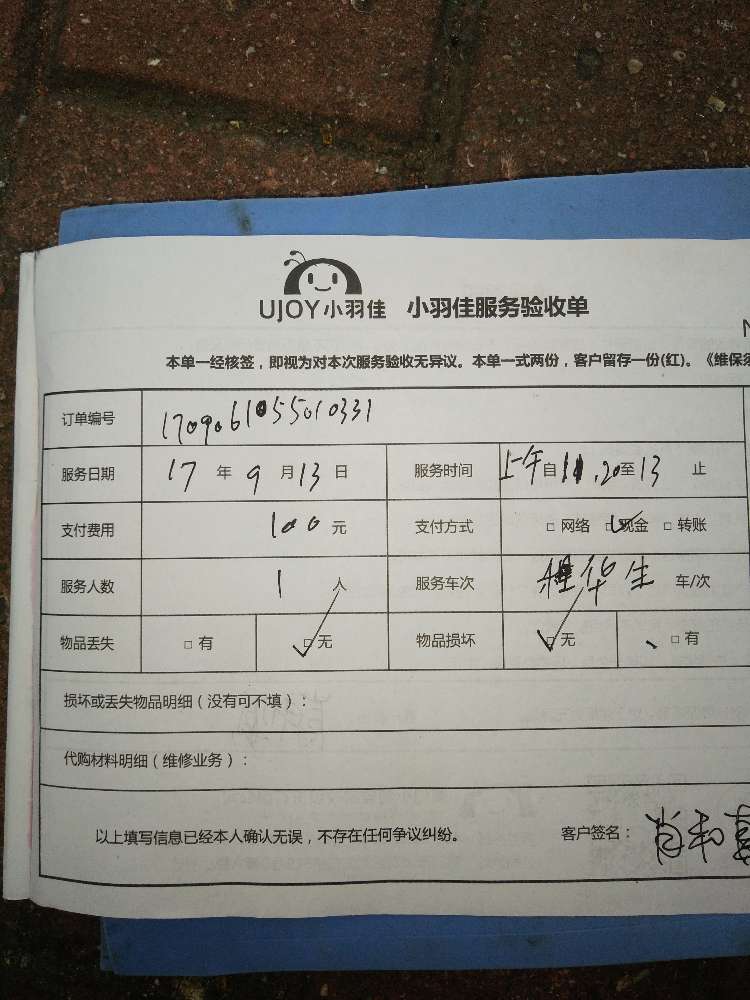 UJOY小羽佳 小羽佳服务验收单
N
本单一经核签，即视为对本次服务验收无异议。本单一式两份，客户留存一份(红)。《维保须
订单编号 1709061055010331
服务日期 17 年 9 月 13 日 服务时间 上午自11.20至13 止
支付费用 100 元 支付方式 □ 网络 □现金 □ 转账
服务人数 1 人 服务车次 程华生 车/次
物品丢失 □ 有 □无 物品损坏 □无 □有
损坏或丢失物品明细（没有可不填）：
代购材料明细（维修业务）：
以上填写信息已经本人确认无误，不存在任何争议纠纷。 客户签名：